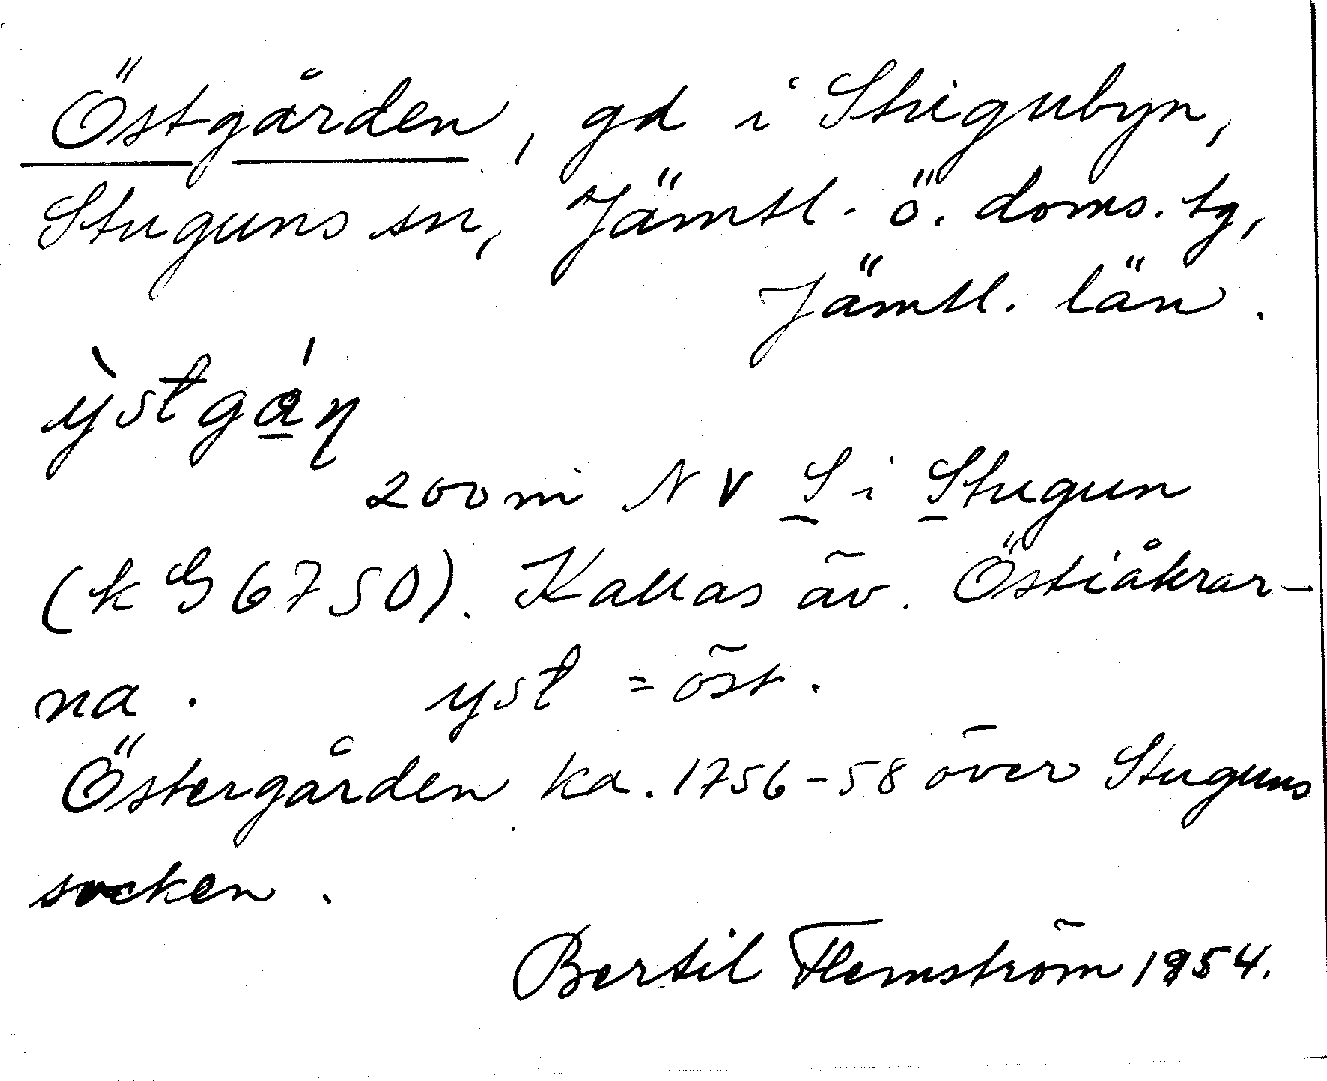 Östgården, gd i Stugubyn,
Stuguns sn, Jämtl. ö. doms. tg,
Jämtl. län.
ỳstgáṇ
200 m NV S i Stugun
(k G 6750). Kallas äv. Östiåkrar-
na. yst = öst.
Östergården ka. 1756-58 över Stuguns
socken.
Bertil Flemström 1954.